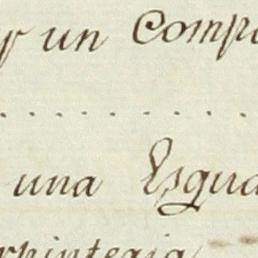 y un Compa
una Esqua
rpinteria